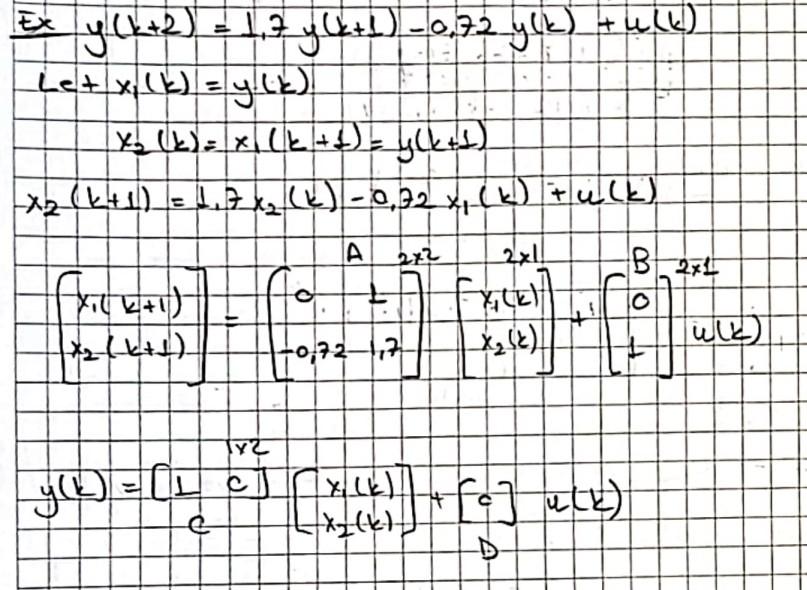 Ex y(k+2) = 1,7 y(k+1) - 0,72 y(k) + u(k)
Let x₁(k) = y(k)
x₂(k) = x₁(k+1) = y(k+1)
x₂(k+1) = 1,7 x₂(k) - 0,72 x₁(k) + u(k)
A 2x2 2x1 B 2x1
[x₁(k+1) x₂(k+1)] = [0 1 -0,72 1,7] [x₁(k) x₂(k)] + [0 1] u(k)
1x2
y(k) = [1 0] [x₁(k) x₂(k)] + [0] u(k)
C D